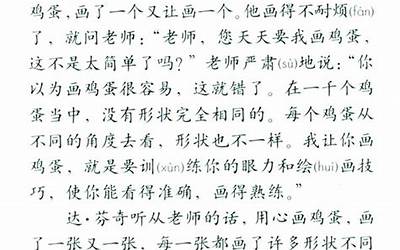 鸡蛋，画了一个又让画一个。他画得不耐烦(fán)
了，就问老师：“老师，您天天要我画鸡蛋，
这不是太简单了吗？”老师严肃(sù)地说：“你
以为画鸡蛋很容易，这就错了。在一千个鸡
蛋当中，没有形状完全相同的。每个鸡蛋从
不同的角度去看，形状也不一样。我让你画
鸡蛋，就是要训(xùn)练你的眼力和绘(huì)画技
巧，使你能看得准确，画得熟练。”
达·芬奇听从老师的话，用心画鸡蛋，画
了一张又一张，每一张都画了许多形状不同